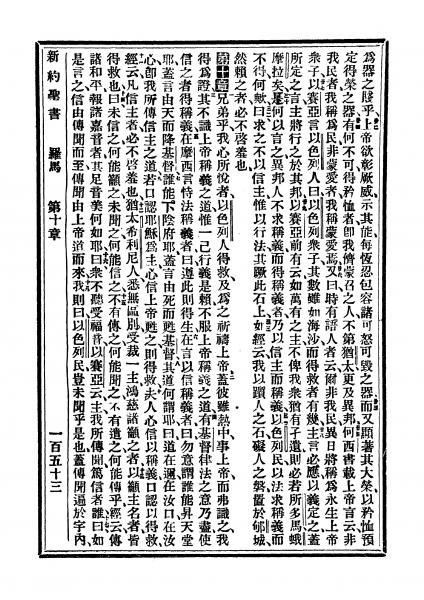 為器之賤乎上帝欲彰厥威示其能每恆忍包容諸可怒可毀之器而又顯著其大榮以矜恤預
定得榮之器有何不可得矜恤者卽我儕蒙召之人不第猶太更及異邦何西書載上帝言云非
我民者我稱爲民非蒙愛者我稱蒙愛焉又曰時有語人者云爾非我民異日將稱爲永生上帝
衆子以賽亞言以色列人曰以色列衆子其數雖如海沙而得救者有幾主言必應以義定之蓋
所定之言主將行之於其邦以賽亞前有云如萬有之主不俾我衆猶有孑遺則必若所多馬蛾
摩拉矣是何以言之異邦人不求稱義而得稱義者乃以信主而稱義以色列民以法求稱義而
不得何歟曰求之不以信主惟以行法其蹶此石上如經云我以躓人之石礙人之磐置於郇城
然賴之者必不啓羞也
第十章兄弟乎我心所悅者以色列人得救及爲之祈禱上帝蓋彼雖熱中事上帝而弗識之我
得爲證其不識上帝稱義之道惟一己行義是賴不服上帝稱義之道有基督律法之意乃盡使
信之者得稱義在摩西言恃法稱義者曰遵此則得生在言以信稱義者曰勿意謂誰能昇天堂
耶蓋言由天而降基督誰能下陰府耶蓋言由死而甦基督其道何謂耶曰道在邇在汝口在汝
心卽我所傳信主之道若口認耶穌爲主心信上帝甦之則得救夫人心信以稱義口認以得救
經云凡信主者必不啓羞也猶太希利尼人悉無區別受裁一主鴻慈諸籲之者以籲主名者皆
得救也曰未信之何能籲之未聞之何能信之不有傳之何能聞之不有遣之何能傳乎經云傳
諸和平報諸嘉音者其足音美何如耶曰衆不聽受福音以賽亞云主我所傳聞篤信者誰曰如
是言之信由傳聞而至傳聞由上帝道而來我則曰以色列民豈未聞乎是也蓋傳聞遍於字內
新約聖書 羅馬 第十章 一百五十三